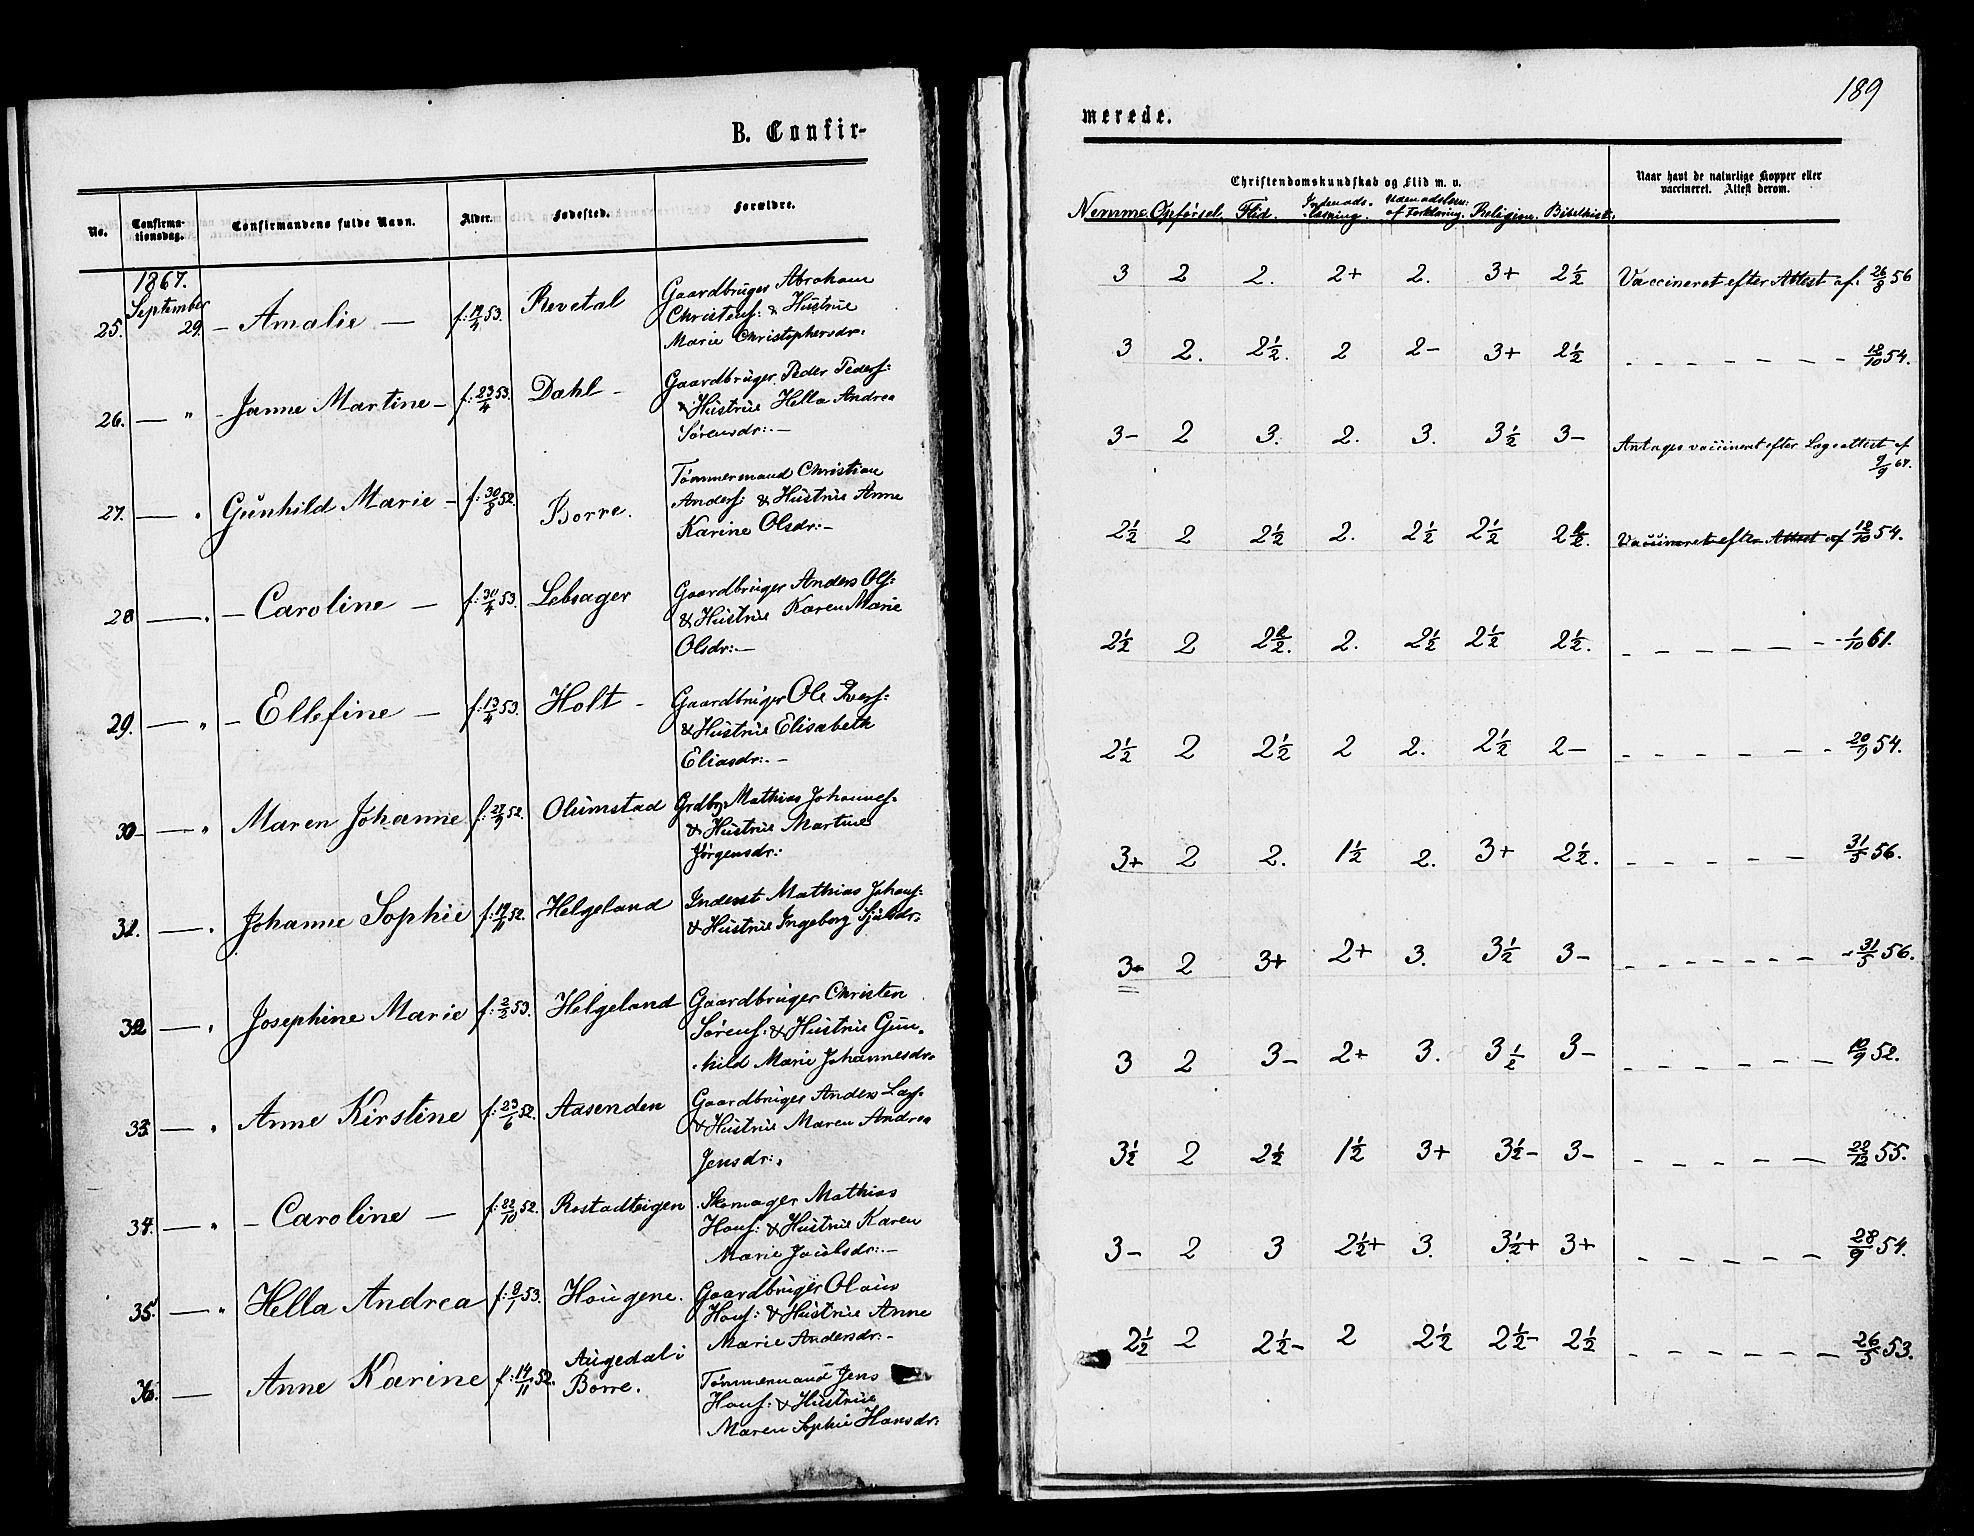 B. Confir-
No.
Confirma-
tionsdag.
Confirmandens fulde Navn.
Alder.
Fødested.
Forældre.
1867.
September
25. 29. - Amalie - f: 17/4 53. Revetal
Gaardbruger Abraham
Christens: & Hustrue
Marie Christophersdr:
26. — " - Janne Martine - f: 23/4 53. Dahl -
Gaardbruger Peder Peders:
& Hustrue Hella Andrea
Sørensdr: -
27. — " Gunhild Marie - f: 30/8 52. Borre.
Tømmermand Christian
Anders: & Hustrue Anne
Karine Olsdr: -
28 — " - Caroline - f: 30/4 53. Lebsager
Gaardbruger Anders Ols:
& Hustrue Karen Marie
Olsdr: -
29. — " - Ellefine - f: 13/4 53. Holt -
Gaardbruger Ole Ivers:
& Hustrue Elisabeth
Eliasdr: -
30 — " Maren Johanne f: 27/9 52. Olumstad
Grdbr. Mathias Johannes:
& Hustrue Martine
Jørgensdr:
31. — " Johanne Sophie f: 19/11 52. Helgeland
Inderst Mathias Johans:
& Hustrue Ingeborg
32 — " Josephine Marie f: 2/2 53. Helgeland
Gaardbruger Christen
Sørens: & Hustrue Gun-
hild Marie Johannesdr.
33. — " Anne Kirstine f: 23/6 52. Aasenden
Gaardbruger Anders Lars:
& Hustrue Maren Andrea
Jensdr:
34. — " - Caroline - f: 22/10 52. Rostadteigen
Skomager Mathias
Hans: & Hustrue Karen
Marie Jacobsdr: -
35. — " Hella Andrea f: 9/1 53. Hougene.
Gaardbruger Olaus
Hans: & Hustrue Anne
Marie Andersdr: -
36. — Anne Karine f: 14/11 52. Augedal i
Borre.
Tømmermand Jens
Hans: & Hustrue
Maren Sophie Hansdr:
189
merede.
Christendomskundskab og Flid m. v.
Naar havt de naturlige Kopper eller
vaccineret. Attest derom.
Nemme. Opførsel. Flid. Indenads-
læsning. Udenadslæsn:
af Forklaring. Religion. Bibelhist:
3 2 2. 2+ 2. 3+ 2½ Vaccineret efter Attest af: 26/8 56
3 2. 2½. 2 2- 3+ 2½ - - - - - - - 18/10 54.
3- 2 3. 2. 3. 3½ 3- Antages vaccineret efter Lægeattest af
9/9 67.
2½ 2 2½ 2. 2½ 2½ 2½. Vaccineret efter Attest af 18/10 54.
2½ 2 2½. 2. 2½ 2½ 2½. - - - - - - - 1/10 61.
2½ 2 2½ 2 2. 2½ 2- - - - - - - - 20/9 54.
3+ 2 2. 1½ 2. 3+ 2½. - - - - - 31/5 56.
3+ 2 3+ 2+ 3. 3½ 3- - - - - - - - 31/5 56.
3 2 3- 2+ 3. 3½ 3- - - - - - 10/9 52.
3½ 2 2½ 1½ 3+ 3½- 3- - - - - - 22/12 55.
3- 2 3 2½+ 3. 3½+ 3+ - - - - - 28/9 54.
2½ 2 2½- 2 2½ 2½- 2½ - - - - - - 26/5 53.